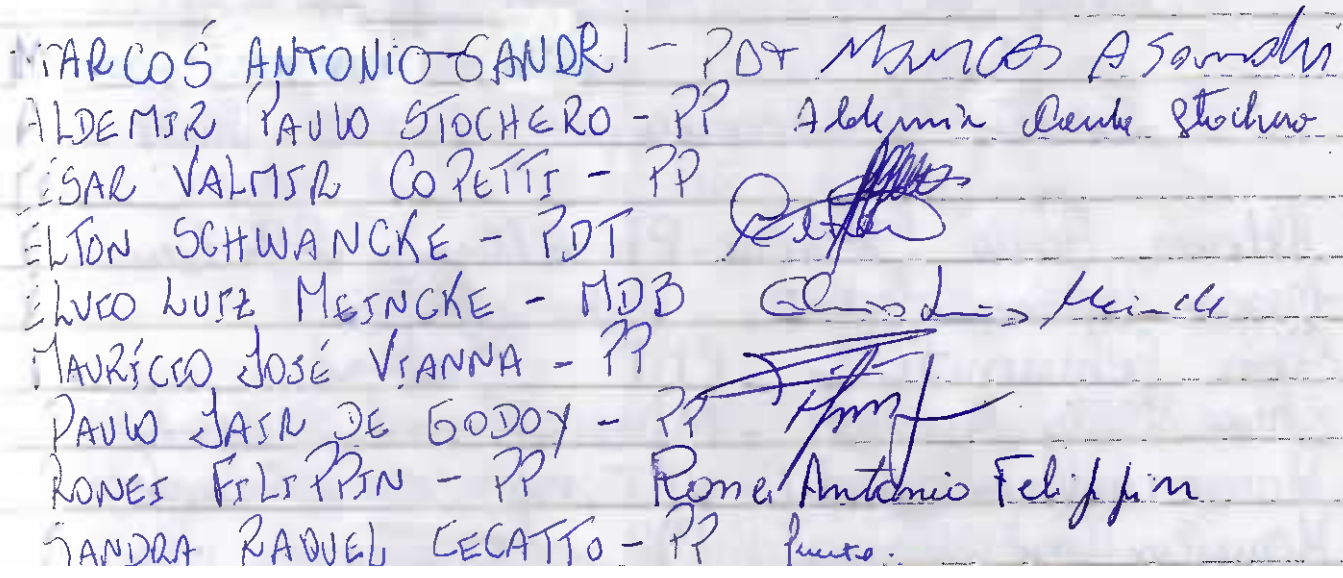 MARCOS ANTONIO SANDRI - PDT Marcos A Sandri
ALDEMIR PAULO STOCHERO - PP Aldemir Paulo Stochero
CÉSAR VALMIR COPETTI - PP
ELTON SCHWANCKE - PDT
ELVIO LUIZ MEINCKE - MDB Elvio Luiz Meincke
MAURÍCIO JOSÉ VIANNA - PP
PAULO JAIR DE GODOY - PP
RONEI FILIPPIN - PP Ronei Antonio Felippin
SANDRA RAQUEL CECATTO - PP